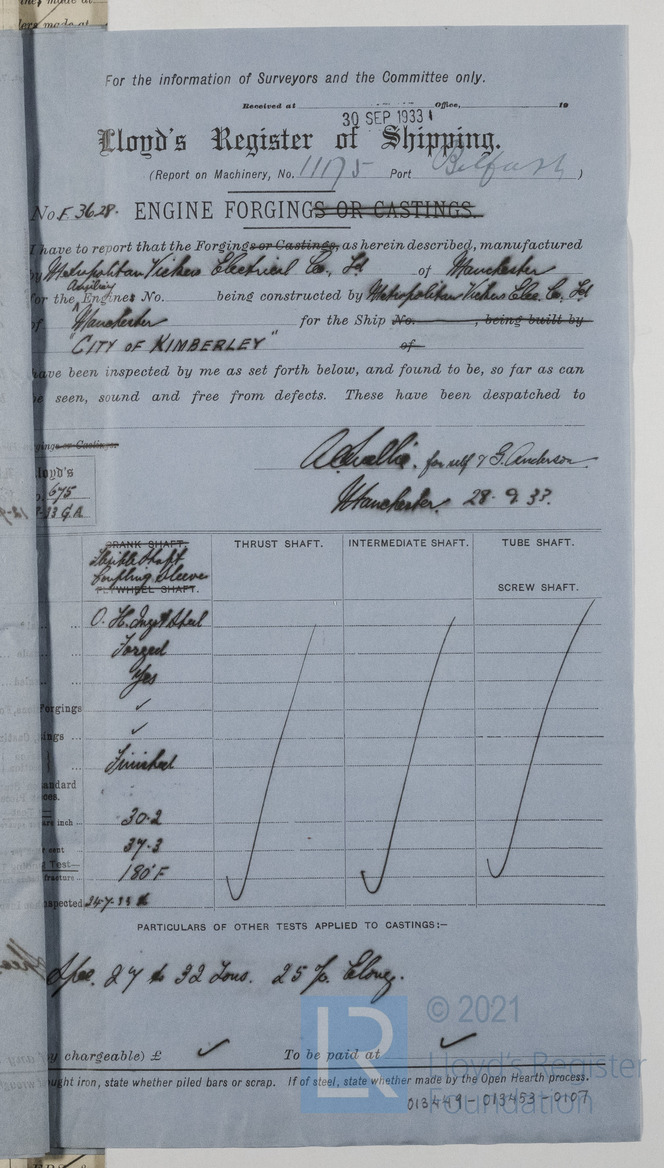 For the information of Surveyors and the Committee only.
Received at Office, 19
30 SEP 1933
Lloyd's Register of Shipping.
(Report on Machinery, No. 11175 Port Belfast )
No F. 3628. ENGINE FORGINGS OR CASTINGS.
I have to report that the Forgings or Castings, as herein described, manufactured
by Metropolitan Vickers Electrical Co., Ltd of Manchester
Auxiliary
for the Engines No. being constructed by Metropolitan Vickers Elec. Co. Ltd
of Manchester for the Ship No. , being built by
"CITY OF KIMBERLEY" of
have been inspected by me as set forth below, and found to be, so far as can
be seen, sound and free from defects. These have been despatched to
or Castings
loyd's
for self & G. Anderson
675
Manchester 28.9.33.
G.A.
CRANK SHAFT. THRUST SHAFT. INTERMEDIATE SHAFT. TUBE SHAFT.
Flexible Shaft
Coupling Sleeve
FLYWHEEL SHAFT. SCREW SHAFT.
O. H. Ingot Steel
Forged
Yes
orgings ✓
ings ✓
Finished
andard
ces.
are inch 30.2
cent 37.3
Test
fracture 180°F
spected 24.7.33
PARTICULARS OF OTHER TESTS APPLIED TO CASTINGS:—
Spec. 27 to 32 Tons. 25% Elong.
y chargeable) £ ✓ To be paid at ✓
ught iron, state whether piled bars or scrap. If of steel, state whether made by the Open Hearth process.
013449-013453-0107
LR
© 2021
Lloyd's Register
Foundation